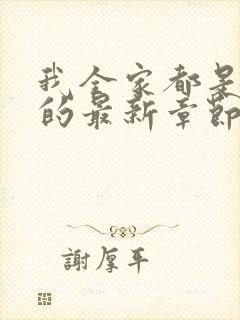 我全家都是
的最新章節
謝厚平